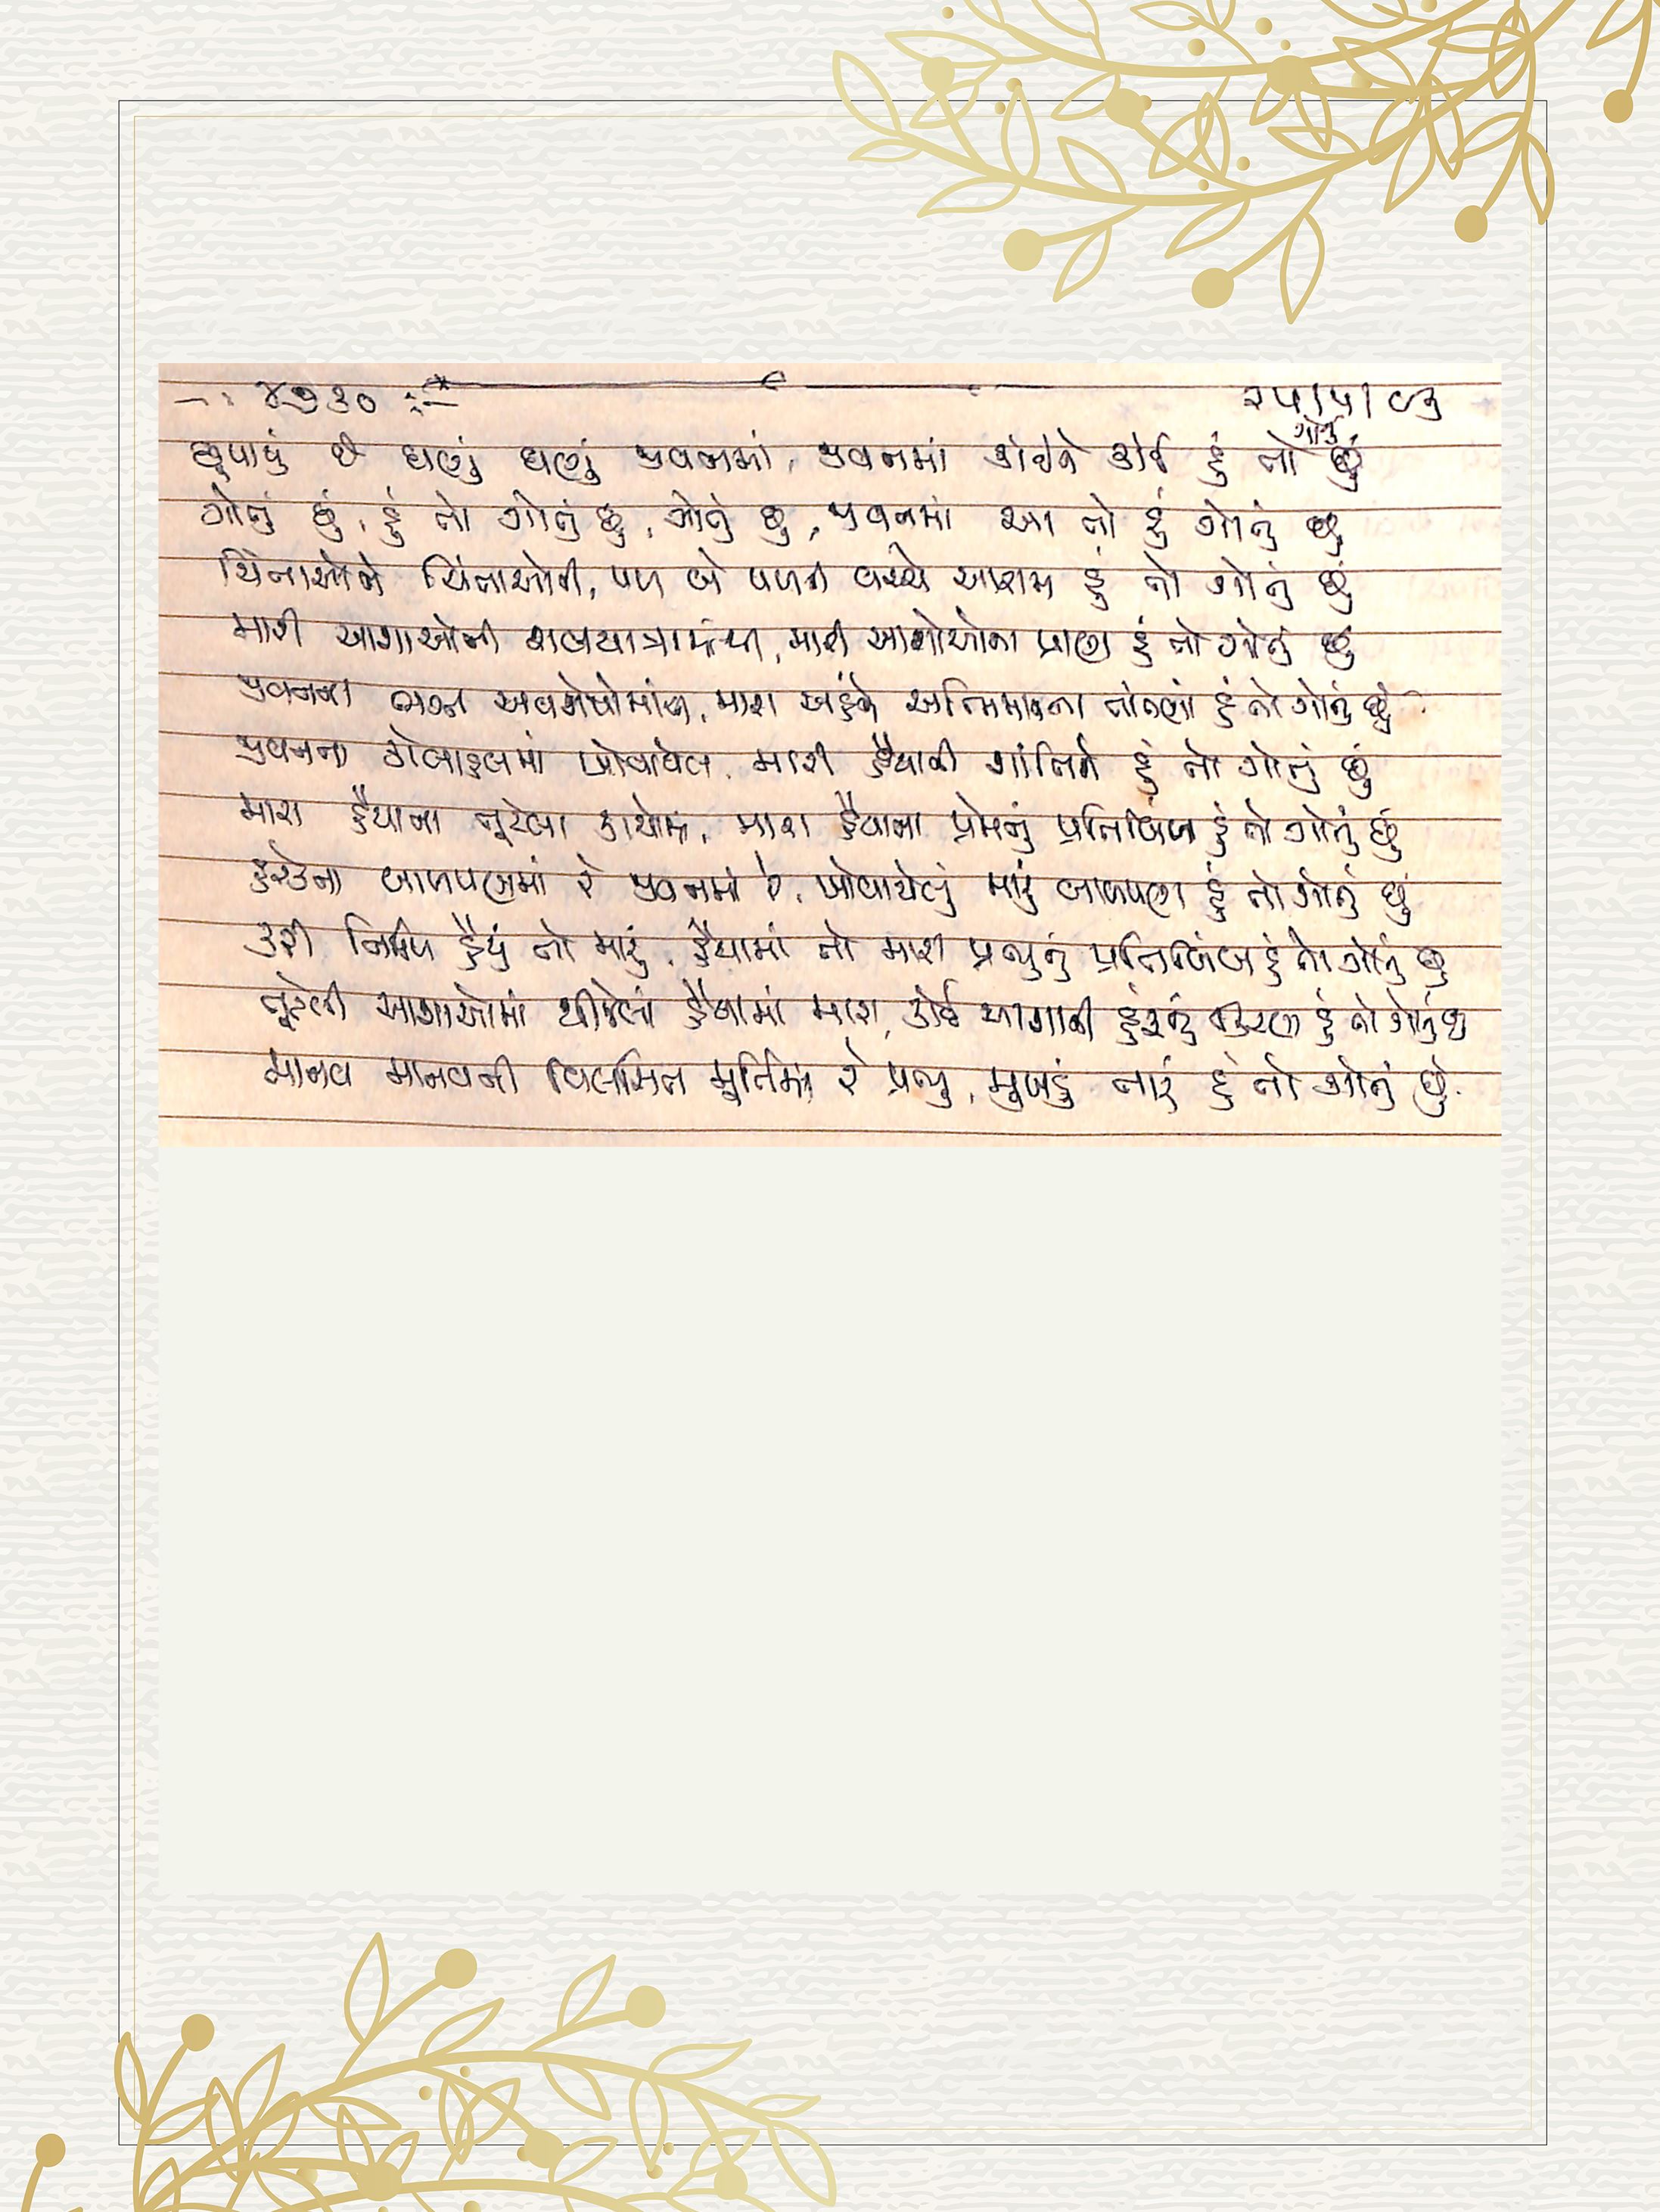 ૪૭૩૦ ૨૫/૫/૯૩
છૂપાયું છે ઘણું ઘણું જીવનમાં, જીવનમાં કાંઈને કાંઈ હું તો ગોતું છું
ગોતું છું, હું તો ગોતું છું, ગોતું છું, જીવનમાં આ તો હું ગોતું છું
ચિંતાઓને ચિંતાઓની, પળ બે પળની વચ્ચે આરામ હું તો ગોતું છું
મારી આશાઓની શબયાત્રામાંથી, મારી આશાઓના પ્રાણ હું તો ગોતું છું
જીવનના ભગ્ન અવશેષોમાંથી, મારા અહંને અભિમાનના તાંતણા હું તો ગોતું છું
જીવનના કોલાહલમાં ખોવાયેલ, મારી હૈયાની શાંતિને હું તો ગોતું છું
મારા હૈયાના તૂટેલા કાચમાં, મારા હૈયાના પ્રેમનું પ્રતિબિંબ હું તો ગોતું છું
બાળપણમાં રે જીવનમાં રે, ખોવાયેલું મારું બાળપણ હું તો ગોતું છું
કરી નિર્મળ હૈયું તો મારું, હૈયામાં તો મારા પ્રભુનું પ્રતિબિંબ હું તો ગોતું છું
તૂટેલી આશાઓમાં હૈયામાં મારા, કોઈ આશાની કિરણ હું તો ગોતું છું
માનવ માનવની વિલસિત મૂર્તિમાં રે પ્રભુ, મુખડું તારું હું તો ગોતું છું.